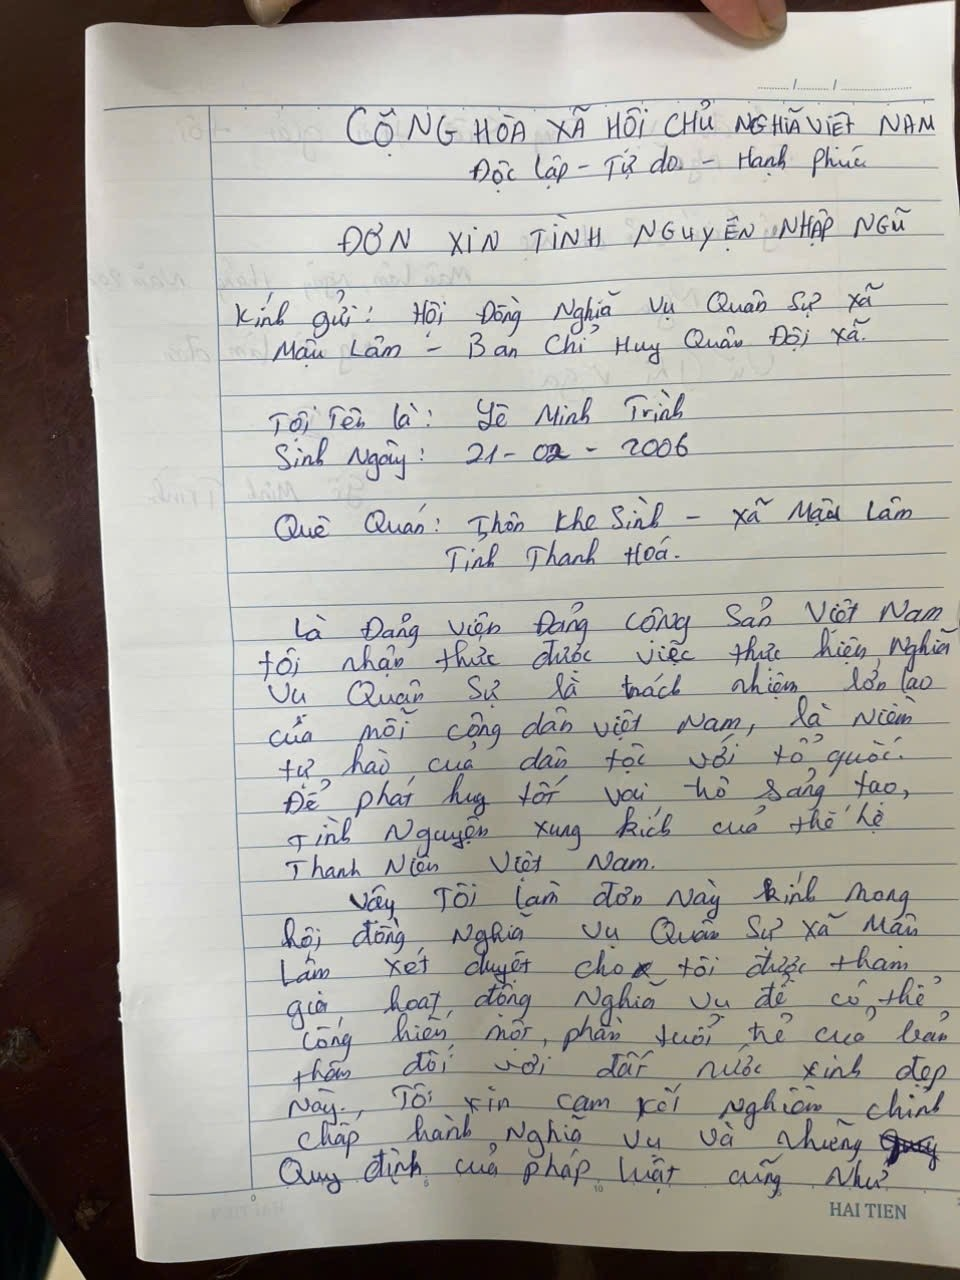 CỘNG HÒA XÃ HỘI CHỦ NGHĨA VIỆT NAM
Độc lập - Tự do - Hạnh phúc
ĐƠN XIN TÌNH NGUYỆN NHẬP NGŨ
Kính gửi: Hội Đồng Nghĩa Vụ Quân Sự xã
Mậu Lâm - Ban Chỉ Huy Quân Đội xã.
Tôi Tên là: Lê Minh Trình
Sinh Ngày: 21-02-2006
Quê Quán: Thôn Khe Sình - xã Mậu Lâm
Tỉnh Thanh Hoá.
Là Đảng viên Đảng Cộng Sản Việt Nam
tôi nhận thức được việc thực hiện Nghĩa
Vụ Quân Sự là trách nhiệm lớn lao
của mỗi công dân việt Nam, là niềm
tự hào của dân tộc với tổ quốc.
Để phát huy tốt vai trò sáng tạo,
Tình Nguyện xung kích của thế hệ
Thanh Niên Việt Nam.
Vậy Tôi làm đơn này kính mong
hội đồng Nghĩa Vụ Quân Sự xã Mậu
Lâm xét duyệt cho tôi được tham
gia hoạt động Nghĩa vụ để có thể
cống hiến một phần tuổi trẻ của bản
thân đối với đất nước xinh đẹp
này. Tôi xin cam kết nghiêm chỉnh
chấp hành Nghĩa vụ và những
Quy định của pháp luật cũng như
HAI TIEN